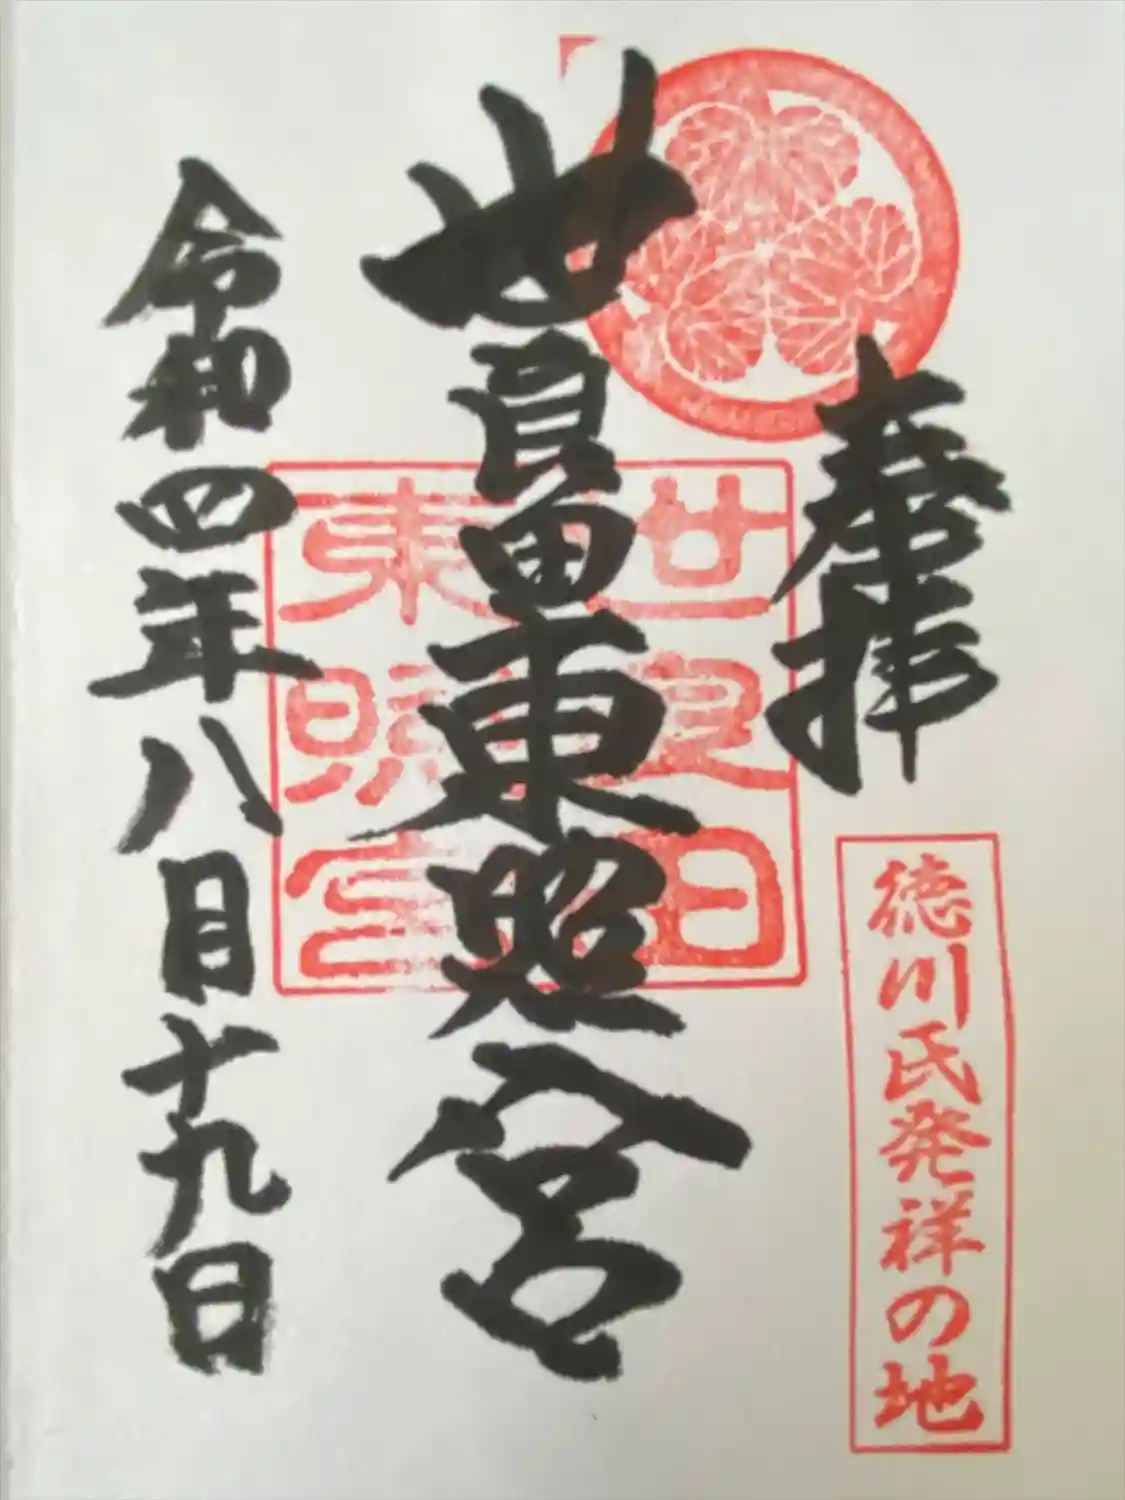 奉拝
徳川氏発祥の地
世良田東照宮
世良田
東照宮
令和四年八月十九日